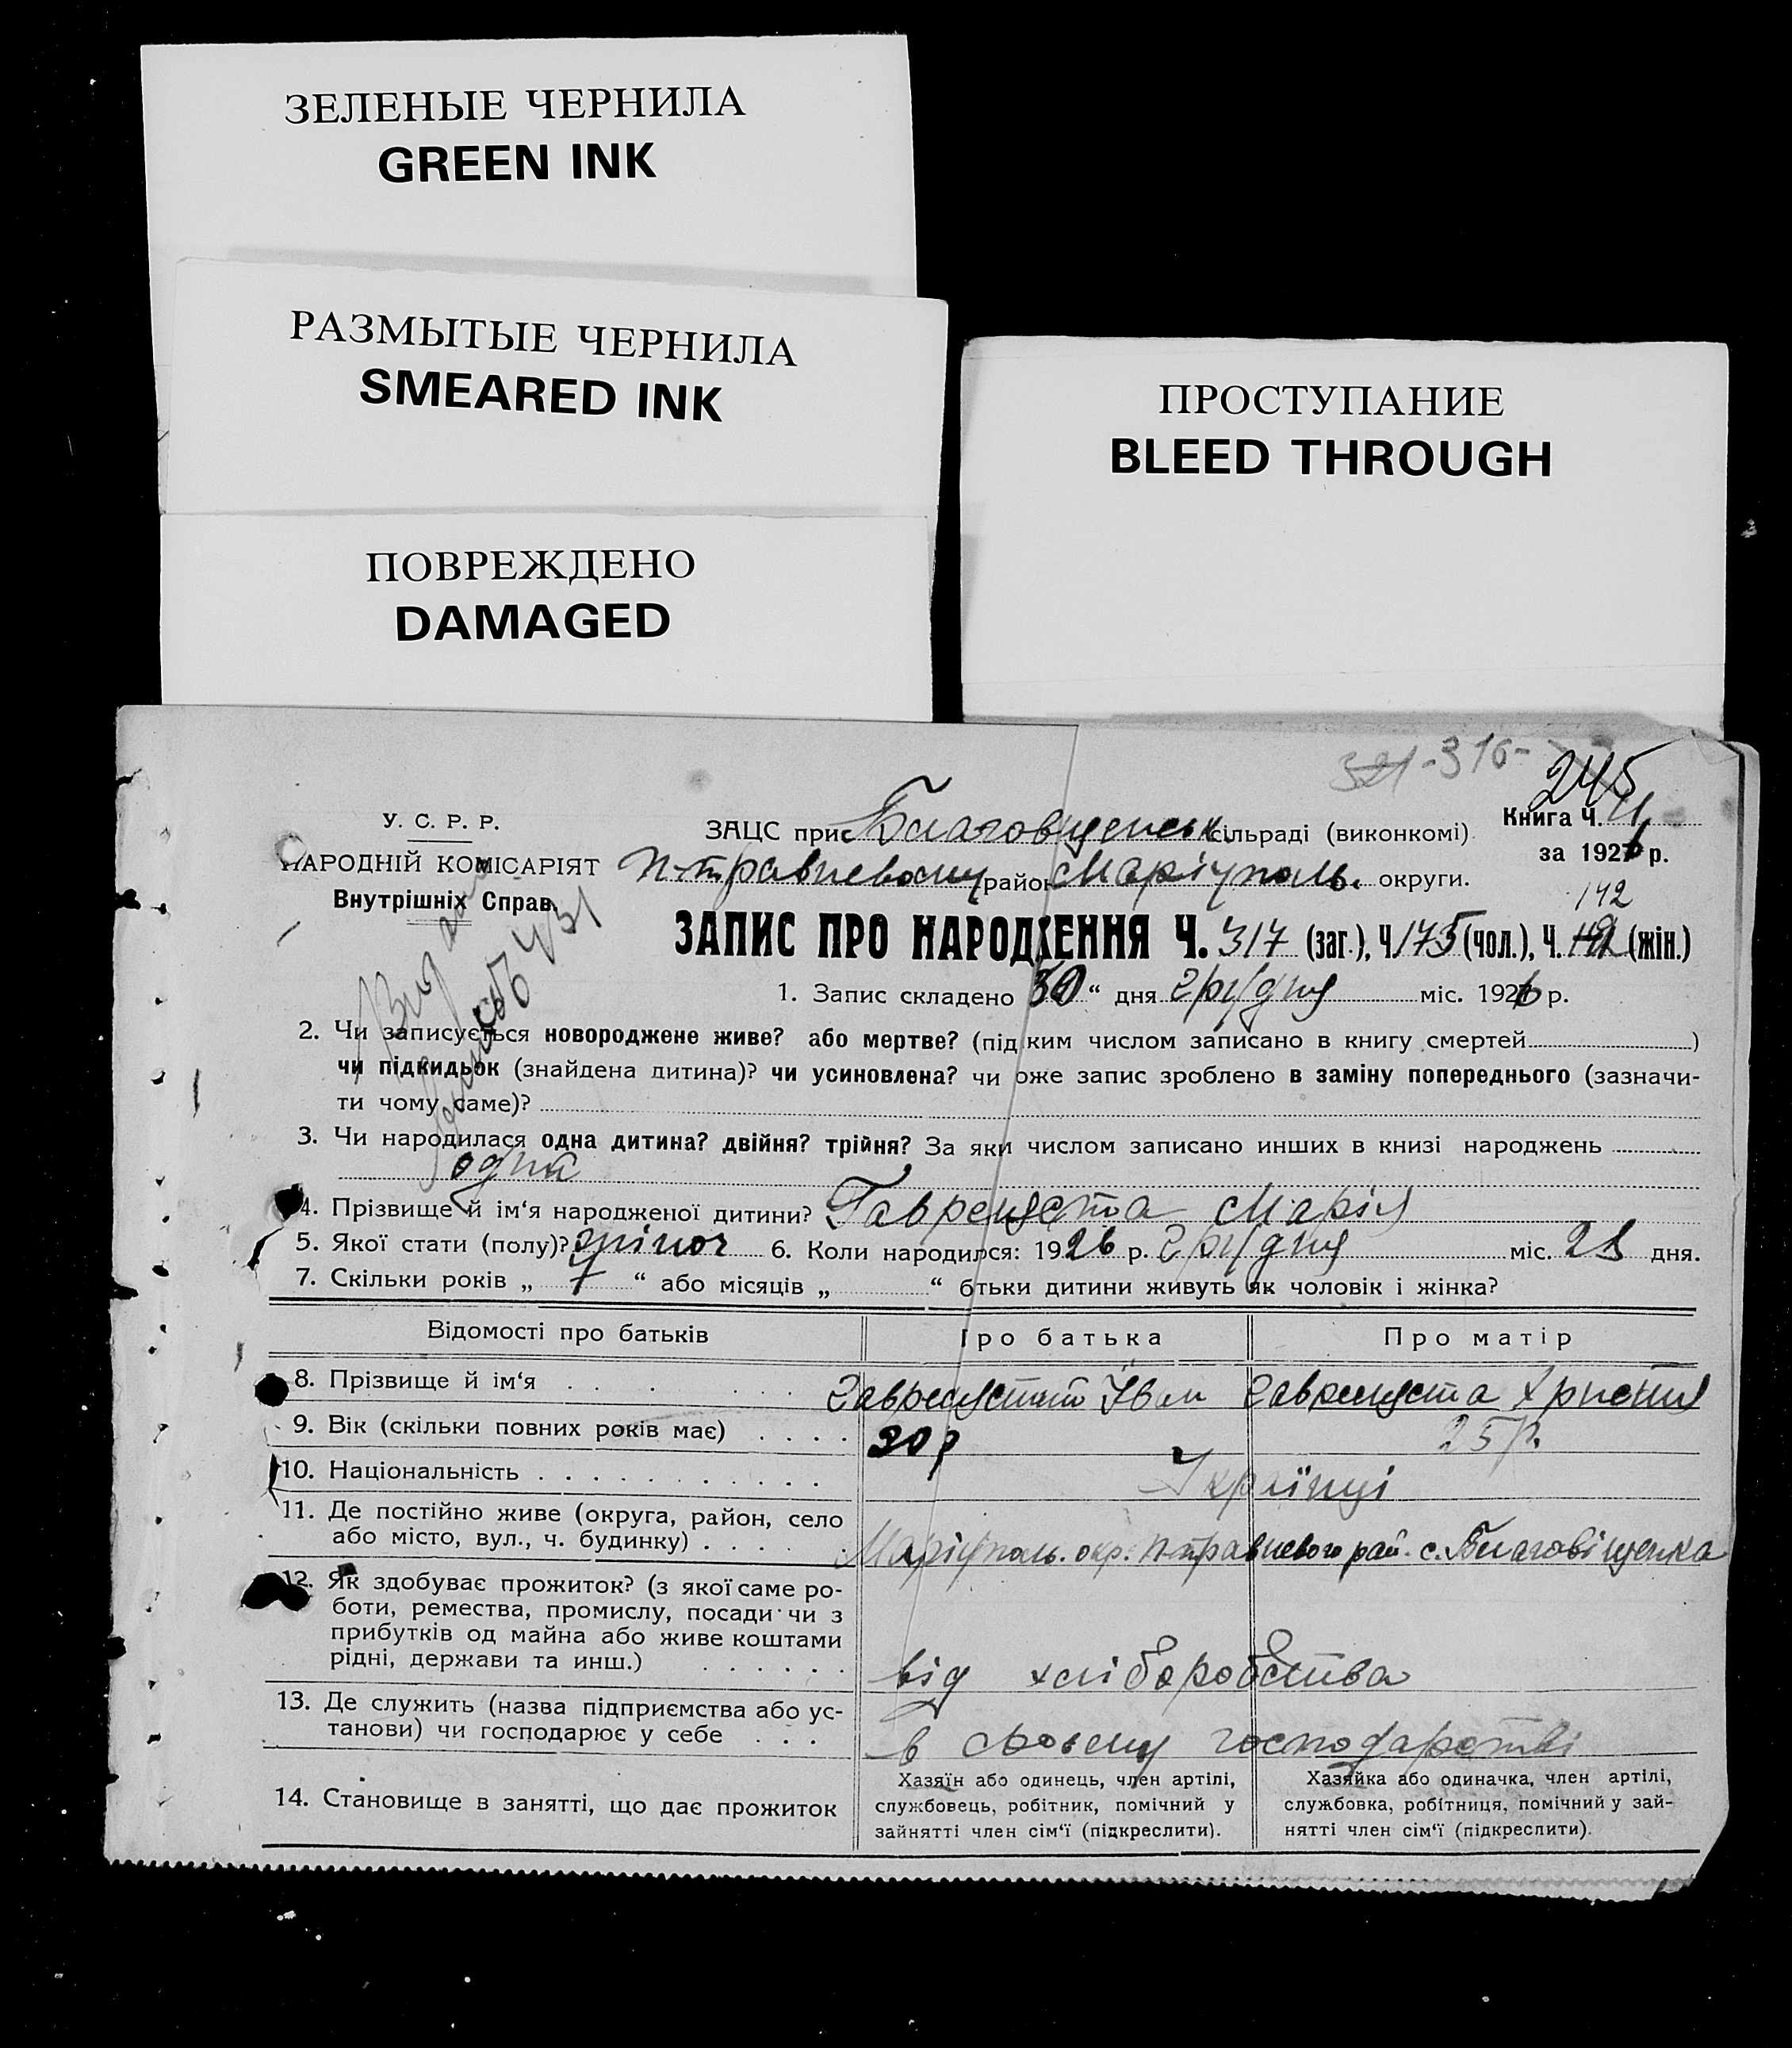 ЗЕЛЕНЫЕ ЧЕРНИЛА
GREEN INK
РАЗМЫТЫЕ ЧЕРНИЛА
SMEARED INK
ПОВРЕЖДЕНО
DAMAGED
ПРОСТУПАНИЕ
BLEED THROUGH
321-316-
245
У. С. Р. Р.
НАРОДНІЙ КОМІСАРІЯТ
Внутрішніх Справ.
ЗАЦС при Благовіщенськ. сільраді (виконкомі)
П-травневому район Маріуполь. округи.
Книга Ч.
за 1926 р.
142
ЗАПИС ПРО НАРОДЖЕННЯ Ч. 317 (заг.), Ч. 175 (чол.), Ч. (жін.)
1. Запис складено 30 “ дня грудня міс. 1926 р.
2. Чи записується новороджене живе? або мертве? (під ким числом записано в книгу смертей )
чи підкидьок (знайдена дитина)? чи усиновлена? чи оже запис зроблено в заміну попереднього (зазначи-
ти чому саме)?
3. Чи народилася одна дитина? двійня? трійня? За яки числом записано инших в книзі народжень
одна
4. Прізвище й ім‘я народженої дитини? Гавреуста Марія
5. Якої стати (полу)? жіноч 6. Коли народился: 1926 р. грудня міс. 28 дня.
7. Скільки років „ 7 “ або місяців „ “ бтьки дитини живуть як чоловік і жінка?
Відомості про батьків
Про батька
Про матір
8. Прізвище й ім‘я
Іван
Христия
9. Вік (скільки повних років має)
30 р
25 р.
10. Національність
Українці
11. Де постійно живе (округа, район, село
або місто, вул., ч. будинку)
Маріуполь. окр. П-травневого рай. с. Благовіщенка
12. Як здобуває прожиток? (з якої саме ро-
боти, ремества, промислу, посади чи з
прибутків од майна або живе коштами
рідні, держави та инш.)
від хліборобства
13. Де служить (назва підприємства або ус-
танови) чи господарює у себе
в своєму господарстві
14. Становище в занятті, що дає прожиток
Хазяїн або одинець, член артілі,
службовець, робітник, помічний у
зайнятті член сім‘ї (підкреслити).
Хазяйка або одиначка, член артілі,
службовка, робітниця, помічний у зай-
нятті член сім‘ї (підкреслити).